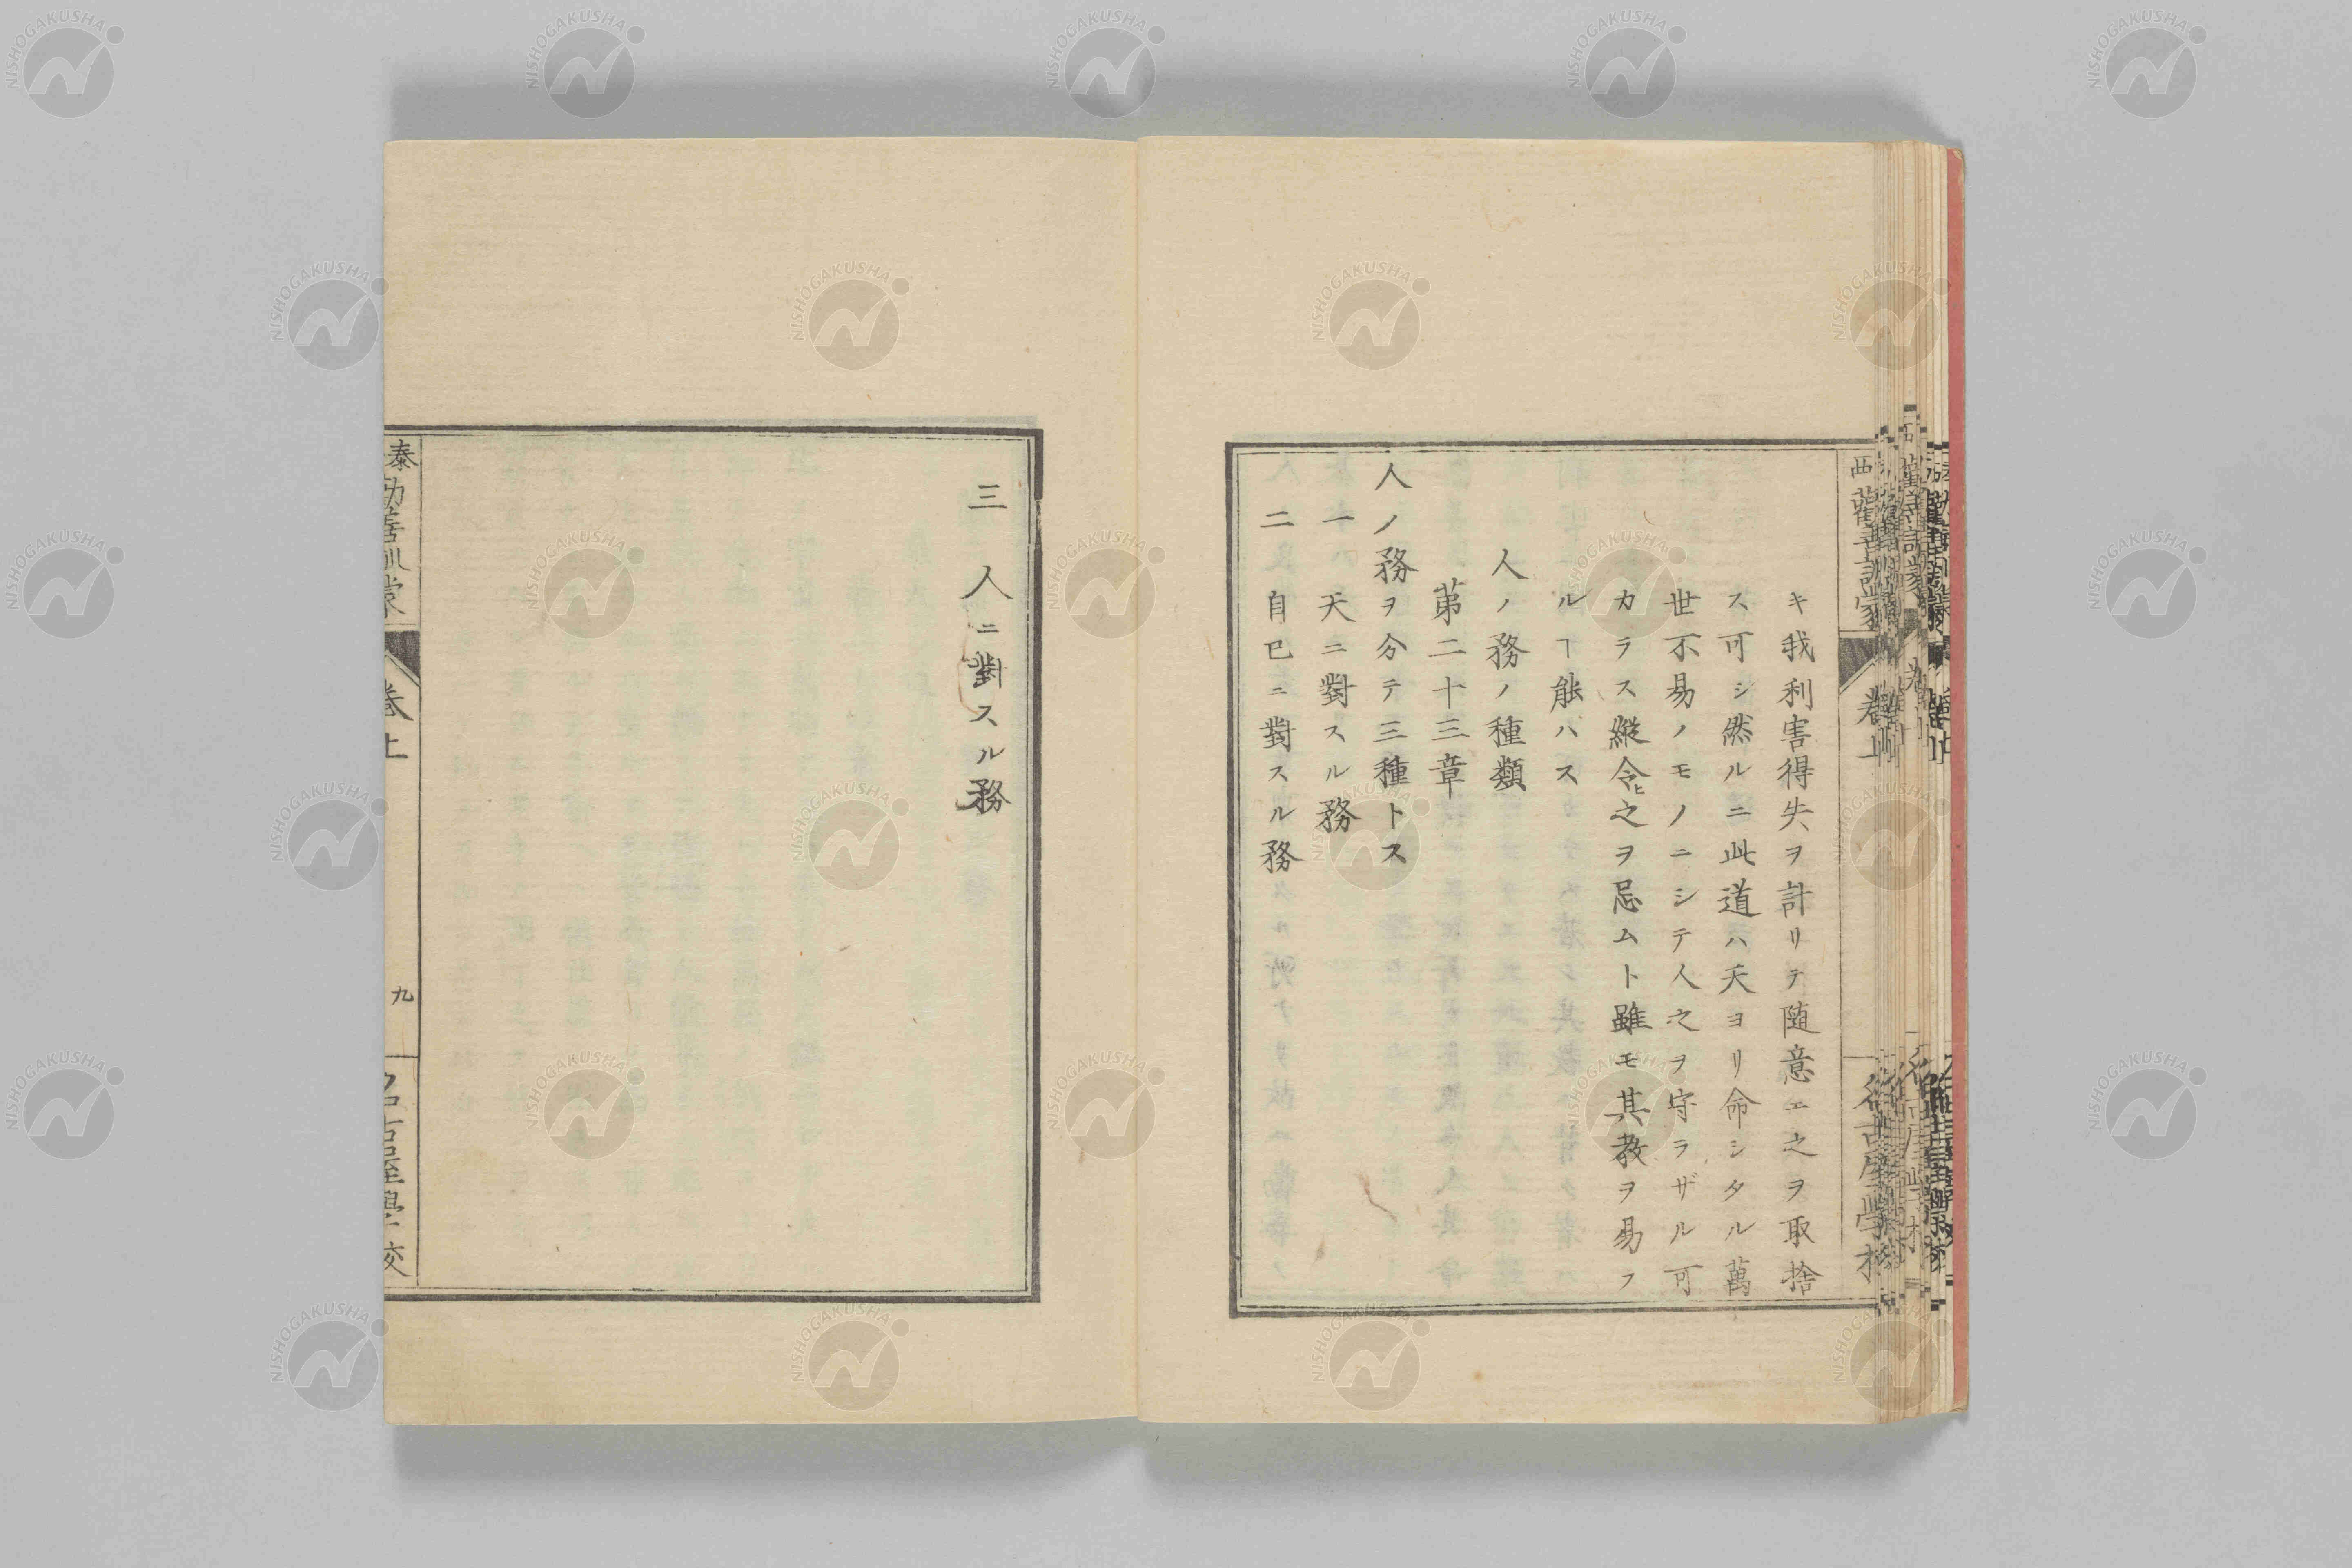 キ我利害得失ヲ計リテ随意ニ之ヲ取捨
ス可シ然ルニ此道ハ天ヨリ命シタル萬
世不易ノモノニシテ人之ヲ守ラザル可
カラス縦令ヒ之ヲ忌ムト雖モ其教ヲ易フ
ルヿ能ハス
人ノ務ノ種類
第二十三章
人ノ務ヲ分テ三種トス
一 天ニ對スル務
二 自己ニ對スル務
三 人ニ對スル務
泰 勧善訓蒙 巻上 九 名古屋學校
NISHOGAKUSHA